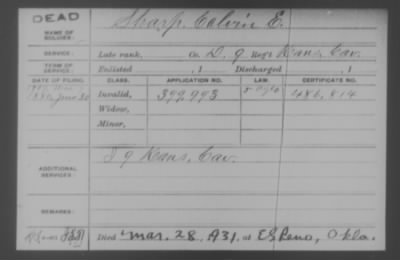 DEAD
NAME OF SOLDIER: Sharp, Calvin E.
SERVICE: Late rank, Co. D, 9 Reg't Kans. Cav.
TERM OF SERVICE: Enlisted , 1 Discharged , 1
DATE OF FILING. CLASS. APPLICATION NO. LAW. CERTIFICATE NO.
1880, June 30 Invalid, 399,993 486,814
Widow,
Minor,
ADDITIONAL SERVICES: I 9 Kans. Cav.
REMARKS:
Died Mar. 28, 1931, at El Reno, Okla.